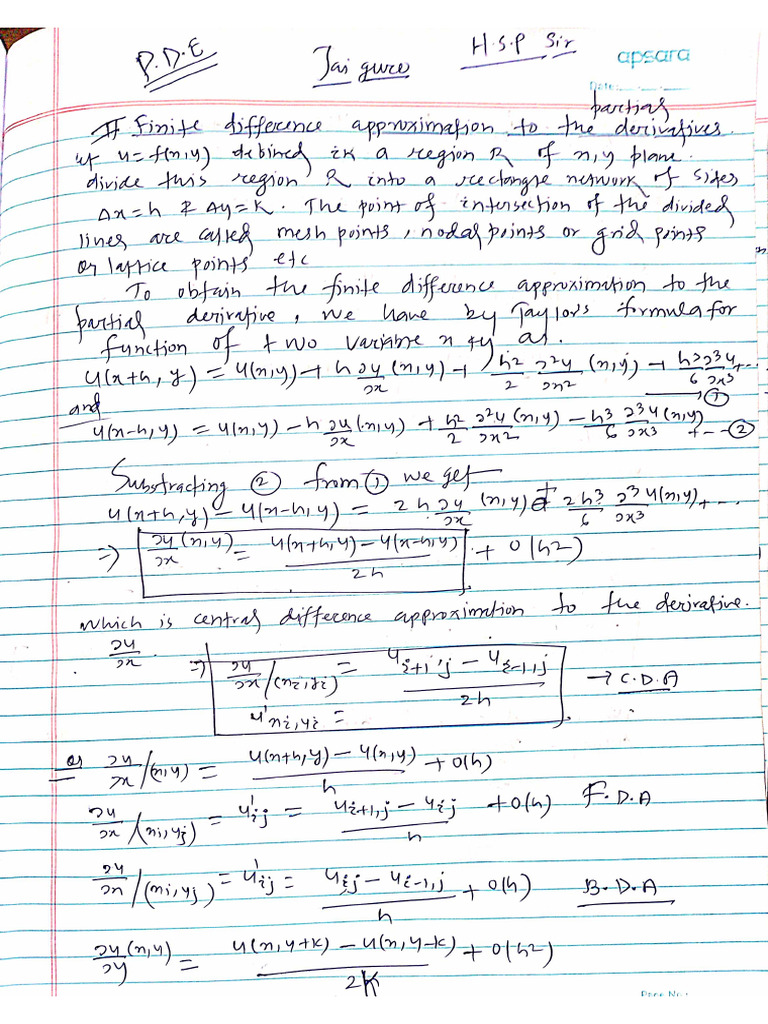 P.D.E Jai guru H.S.P Sir apsara
Date:
partial
# Finite difference approximation to the derivatives.
if u=f(x,y) defined in a region R of x,y plane.
divide this region R into a rectangle network of sides
Δx=h & Δy=K. The point of intersection of the divided
lines are called mesh points, nodal points or grid points
or lattice points etc
To obtain the finite difference approximation to the
partial derivative, we have by Taylor's formula for
function of two variable x & y as.
u(x+h, y) = u(x,y) + h ∂u/∂x (x,y) + h²/2 ∂²u/∂x² (x,y) + h³/6 ∂³u/∂x³ + ... → ①
and
u(x-h, y) = u(x,y) - h ∂u/∂x (x,y) + h²/2 ∂²u/∂x² (x,y) - h³/6 ∂³u/∂x³ (x,y) + -- ②
Substracting ② from ① we get
u(x+h,y) - u(x-h,y) = 2h ∂u/∂x (x,y) + 2h³/6 ∂³u/∂x³ (x,y) + ...
⇒ ∂u/∂x (x,y) = (u(x+h,y) - u(x-h,y))/2h + O(h2)
which is central difference approximation to the derivative.
∂u/∂x
⇒ ∂u/∂x /(xi,yi) = (u i+1,j - u i-1,j)/2h → C.D.A
u'xi,yi =
or ∂u/∂x /(x,y) = (u(x+h,y) - u(x,y))/h + O(h)
∂u/∂x /(xi,yj) = u'ij = (u i+1,j - u ij)/h + O(h) F.D.A
∂u/∂x /(xi,yj) = u'ij = (u i,j - u i-1,j)/h + O(h) B.D.A
∂u/∂y (x,y) = (u(x,y+K) - u(x,y-K))/2K + O(h2)
Page No.: